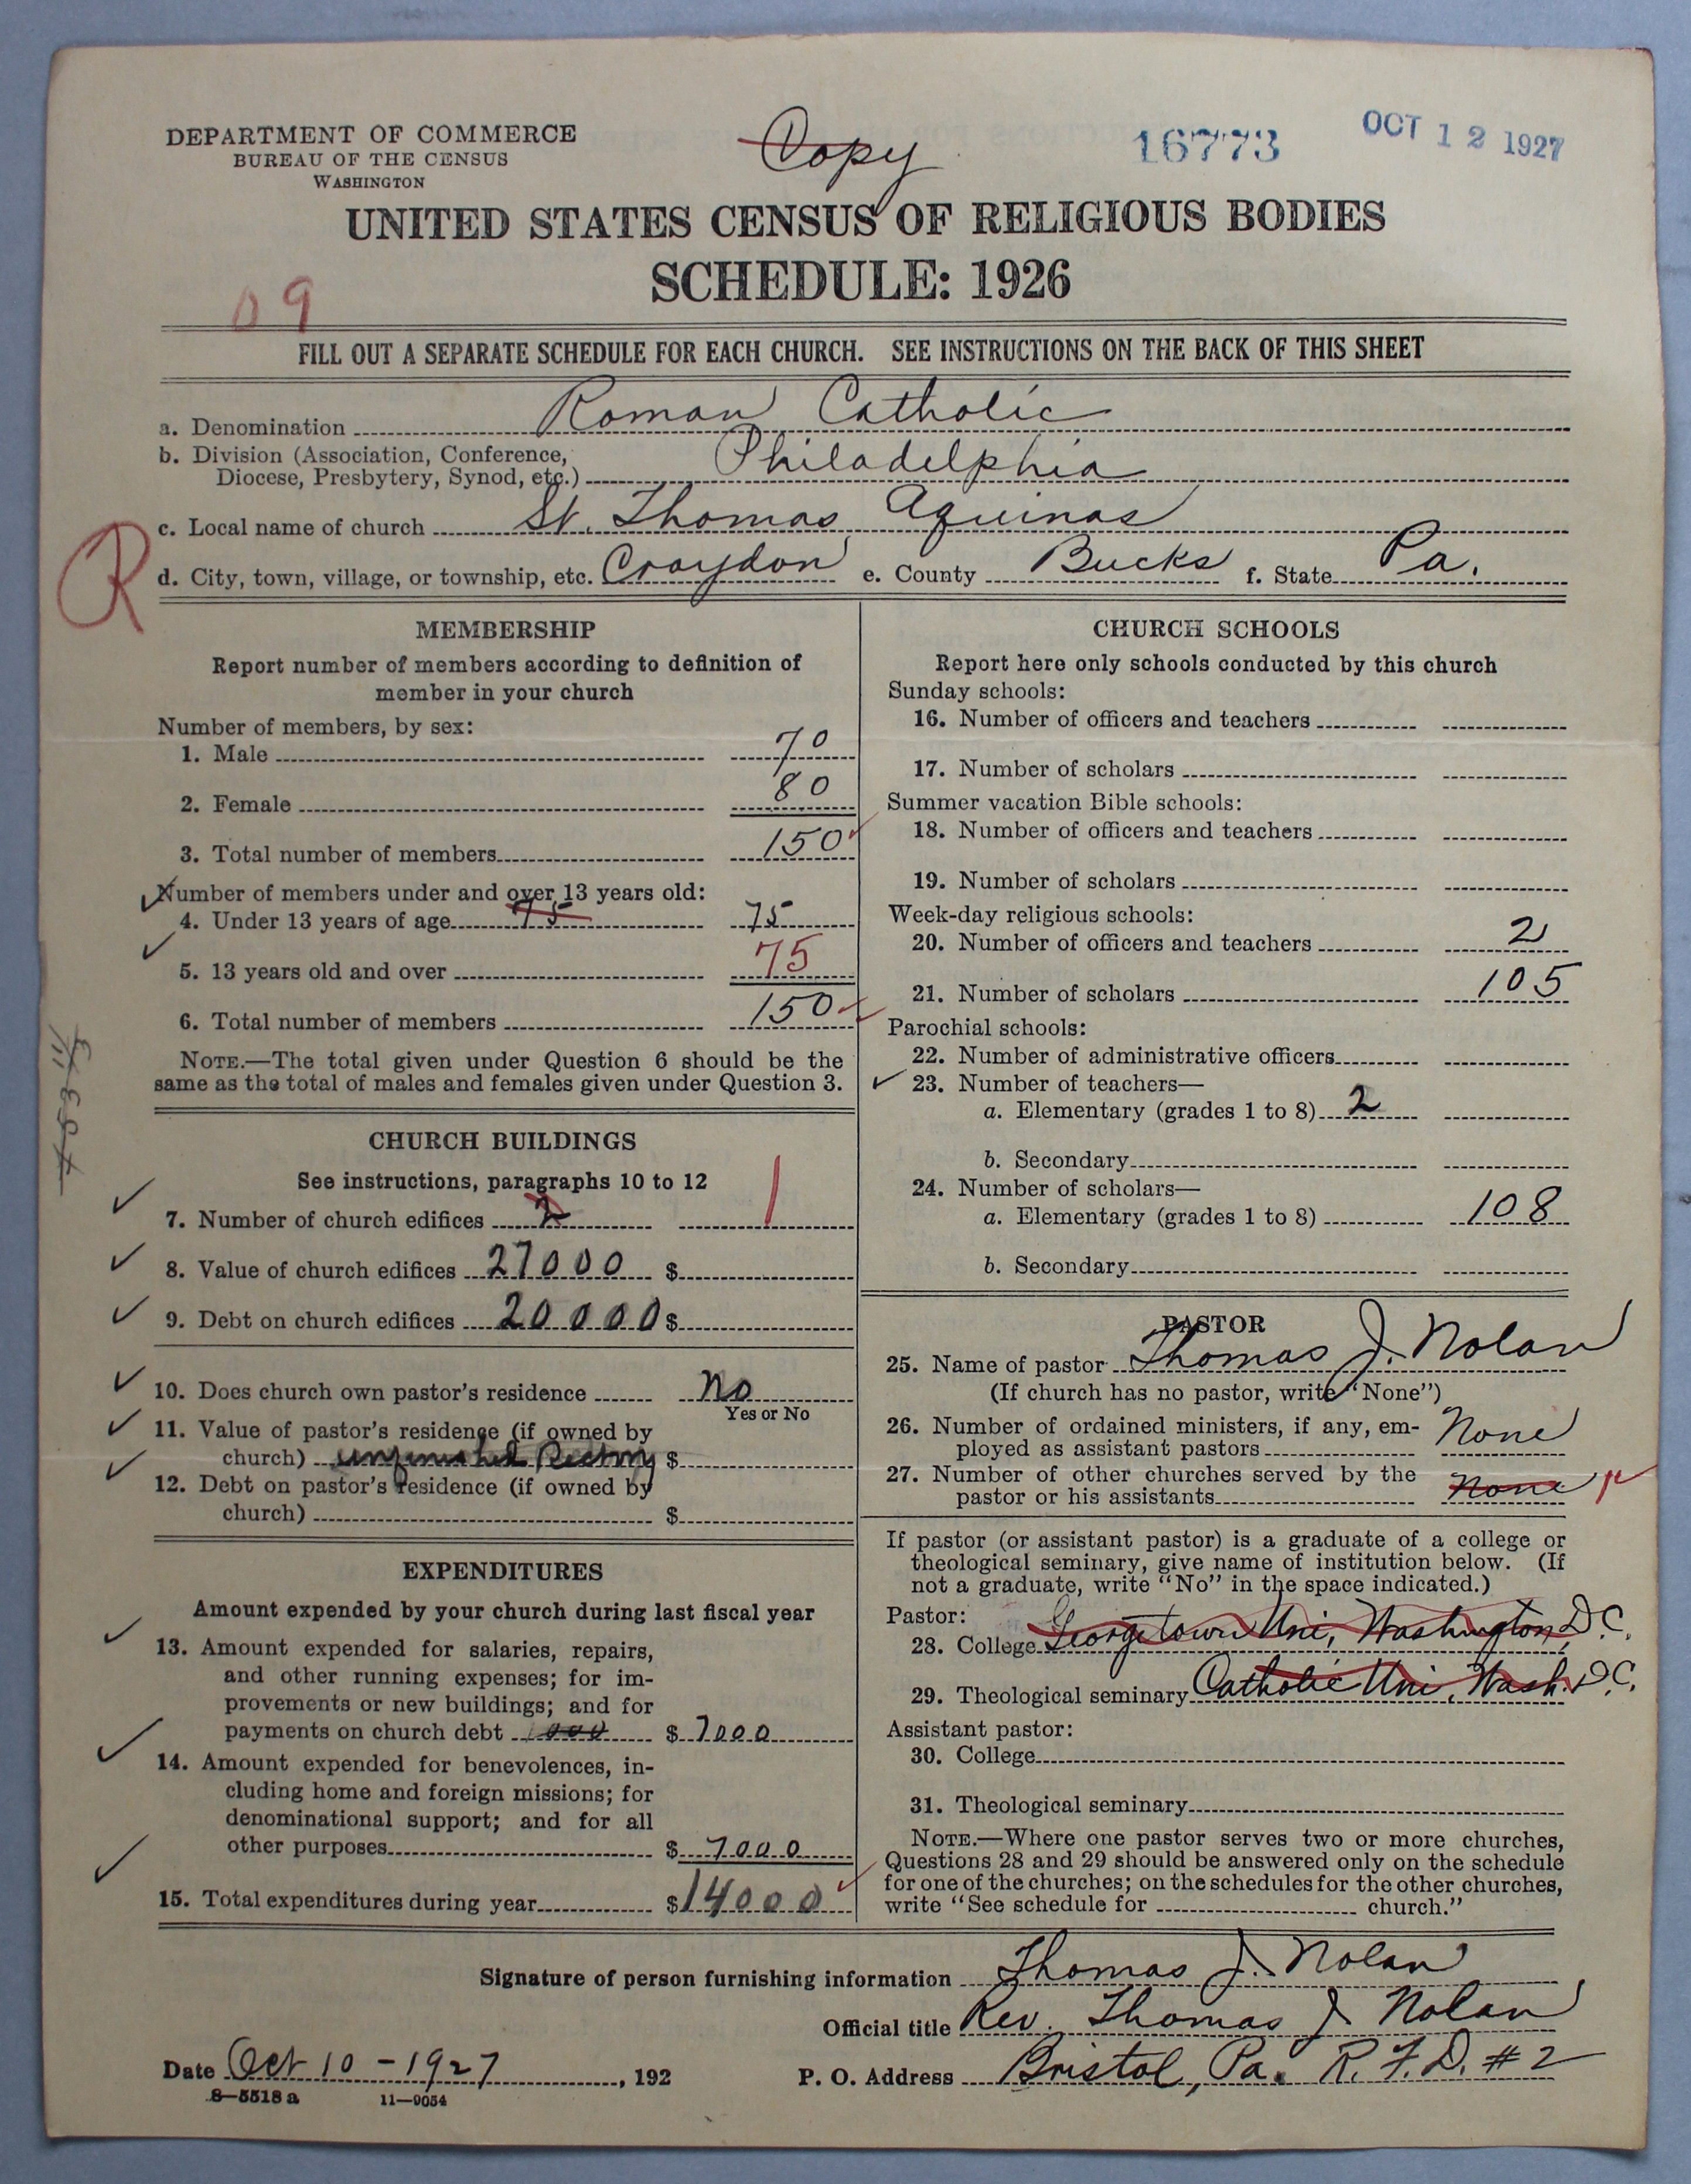 DEPARTMENT OF COMMERCE
BUREAU OF THE CENSUS
WASHINGTON
Copy
16773
OCT 12 1927
UNITED STATES CENSUS OF RELIGIOUS BODIES
SCHEDULE: 1926
09
FILL OUT A SEPARATE SCHEDULE FOR EACH CHURCH. SEE INSTRUCTIONS ON THE BACK OF THIS SHEET
a. Denomination Roman Catholic
b. Division (Association, Conference,
Diocese, Presbytery, Synod, etc.) Philadelphia
c. Local name of church St. Thomas Aquinas
R
d. City, town, village, or township, etc. Croydon e. County Bucks f. State Pa.
MEMBERSHIP
Report number of members according to definition of
member in your church
Number of members, by sex:
1. Male 70
2. Female 80
3. Total number of members 150
Number of members under and over 13 years old:
4. Under 13 years of age 75 75
5. 13 years old and over 75
6. Total number of members 150
NOTE.—The total given under Question 6 should be the
same as the total of males and females given under Question 3.
CHURCH BUILDINGS
See instructions, paragraphs 10 to 12
7. Number of church edifices 2 1
8. Value of church edifices 27000 $
9. Debt on church edifices 20000 $
10. Does church own pastor's residence No
Yes or No
11. Value of pastor's residence (if owned by
church) unfinished Rectory $
12. Debt on pastor's residence (if owned by
church) $
EXPENDITURES
Amount expended by your church during last fiscal year
13. Amount expended for salaries, repairs,
and other running expenses; for im-
provements or new buildings; and for
payments on church debt 1000 $ 7000
14. Amount expended for benevolences, in-
cluding home and foreign missions; for
denominational support; and for all
other purposes $ 7000
15. Total expenditures during year $ 14000
CHURCH SCHOOLS
Report here only schools conducted by this church
Sunday schools:
16. Number of officers and teachers
17. Number of scholars
Summer vacation Bible schools:
18. Number of officers and teachers
19. Number of scholars
Week-day religious schools:
20. Number of officers and teachers 2
21. Number of scholars 105
Parochial schools:
22. Number of administrative officers
23. Number of teachers—
a. Elementary (grades 1 to 8) 2
b. Secondary
24. Number of scholars—
a. Elementary (grades 1 to 8) 108
b. Secondary
PASTOR
25. Name of pastor Thomas J. Nolan
(If church has no pastor, write "None")
26. Number of ordained ministers, if any, em-
ployed as assistant pastors None
27. Number of other churches served by the
pastor or his assistants None
If pastor (or assistant pastor) is a graduate of a college or
theological seminary, give name of institution below. (If
not a graduate, write "No" in the space indicated.)
Pastor:
28. College Georgetown Uni, Washington, D.C.
29. Theological seminary Catholic Uni, Wash. D.C.
Assistant pastor:
30. College
31. Theological seminary
NOTE.—Where one pastor serves two or more churches,
Questions 28 and 29 should be answered only on the schedule
for one of the churches; on the schedules for the other churches,
write "See schedule for church."
Signature of person furnishing information Thomas J. Nolan
Official title Rev. Thomas J Nolan
Date Oct 10 - 1927, 192 P. O. Address Bristol, Pa. R.F.D. #2
8—5518a 11—9054